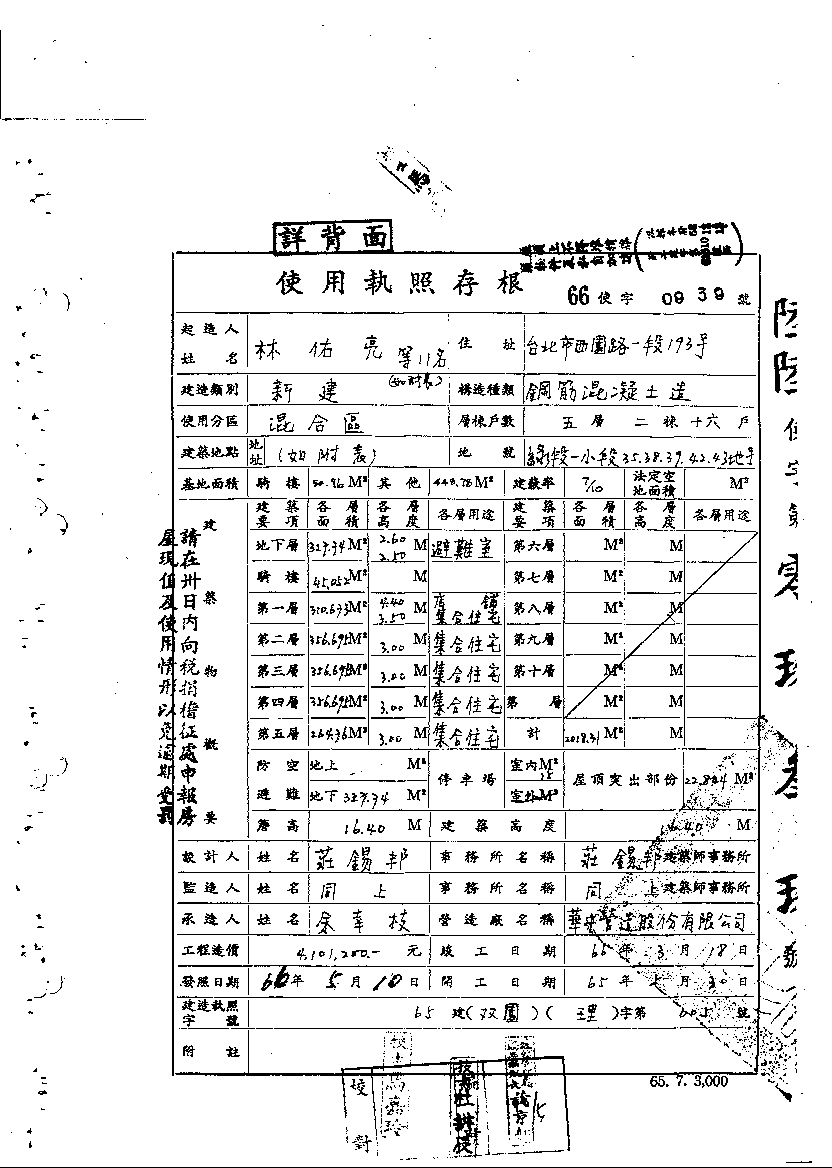 詳背面
使用執照存根
66使字 0939 號
起造人姓名 林佑亮等11名 (如附表) 住址 台北市西園路一段193號
建造類別 新建 構造種類 鋼筋混凝土造
使用分區 混合區 層棟戶數 五層二棟十六戶
建築地點 地址 (如附表) 地號 段一小段35.38.39.42.43地號
基地面積 騎樓 50.86M² 其他 448.78M² 建蔽率 7/10 法定空地面積 M²
建築要項 各層面積 各層高度 各層用途 建築要項 各層面積 各層高度 各層用途
地下層 329.94M² 2.60 2.50 M 避難室 第六層 M² M
騎樓 45.052M² M 第七層 M² M
第一層 310.693M² 4.40 3.50 M 店舖 集合住宅 第八層 M² M
第二層 356.695M² 3.00 M 集合住宅 第九層 M² M
第三層 356.695M² 3.00 M 集合住宅 第十層 M² M
第四層 356.695M² 3.00 M 集合住宅 第 層 M² M
第五層 264.36M² 3.00 M 集合住宅 計 M² M
建築物概要
防空避難 地上 M² 地下 329.94 M² 停車場 室內M² 室外M² 屋頂突出部份 22.884M²
簷高 16.40 M 建築高度 16.40 M
設計人 姓名 莊錫邦 事務所名稱 莊錫邦建築師事務所
監造人 姓名 同上 事務所名稱 同上建築師事務所
承造人 姓名 營造廠名稱 營造股份有限公司
工程造價 4,101,200.- 元 竣工日期 66年3月18日
發照日期 66年5月10日 開工日期 65年 月30日
建造執照字號 65建(双園)(理)字第605號
附註
65. 7. 3,000
請在卅日內向稅捐稽征處申報房
屋現值及使用情形以免逾期受罰
陸陸使字第零玖叁玖號
校對